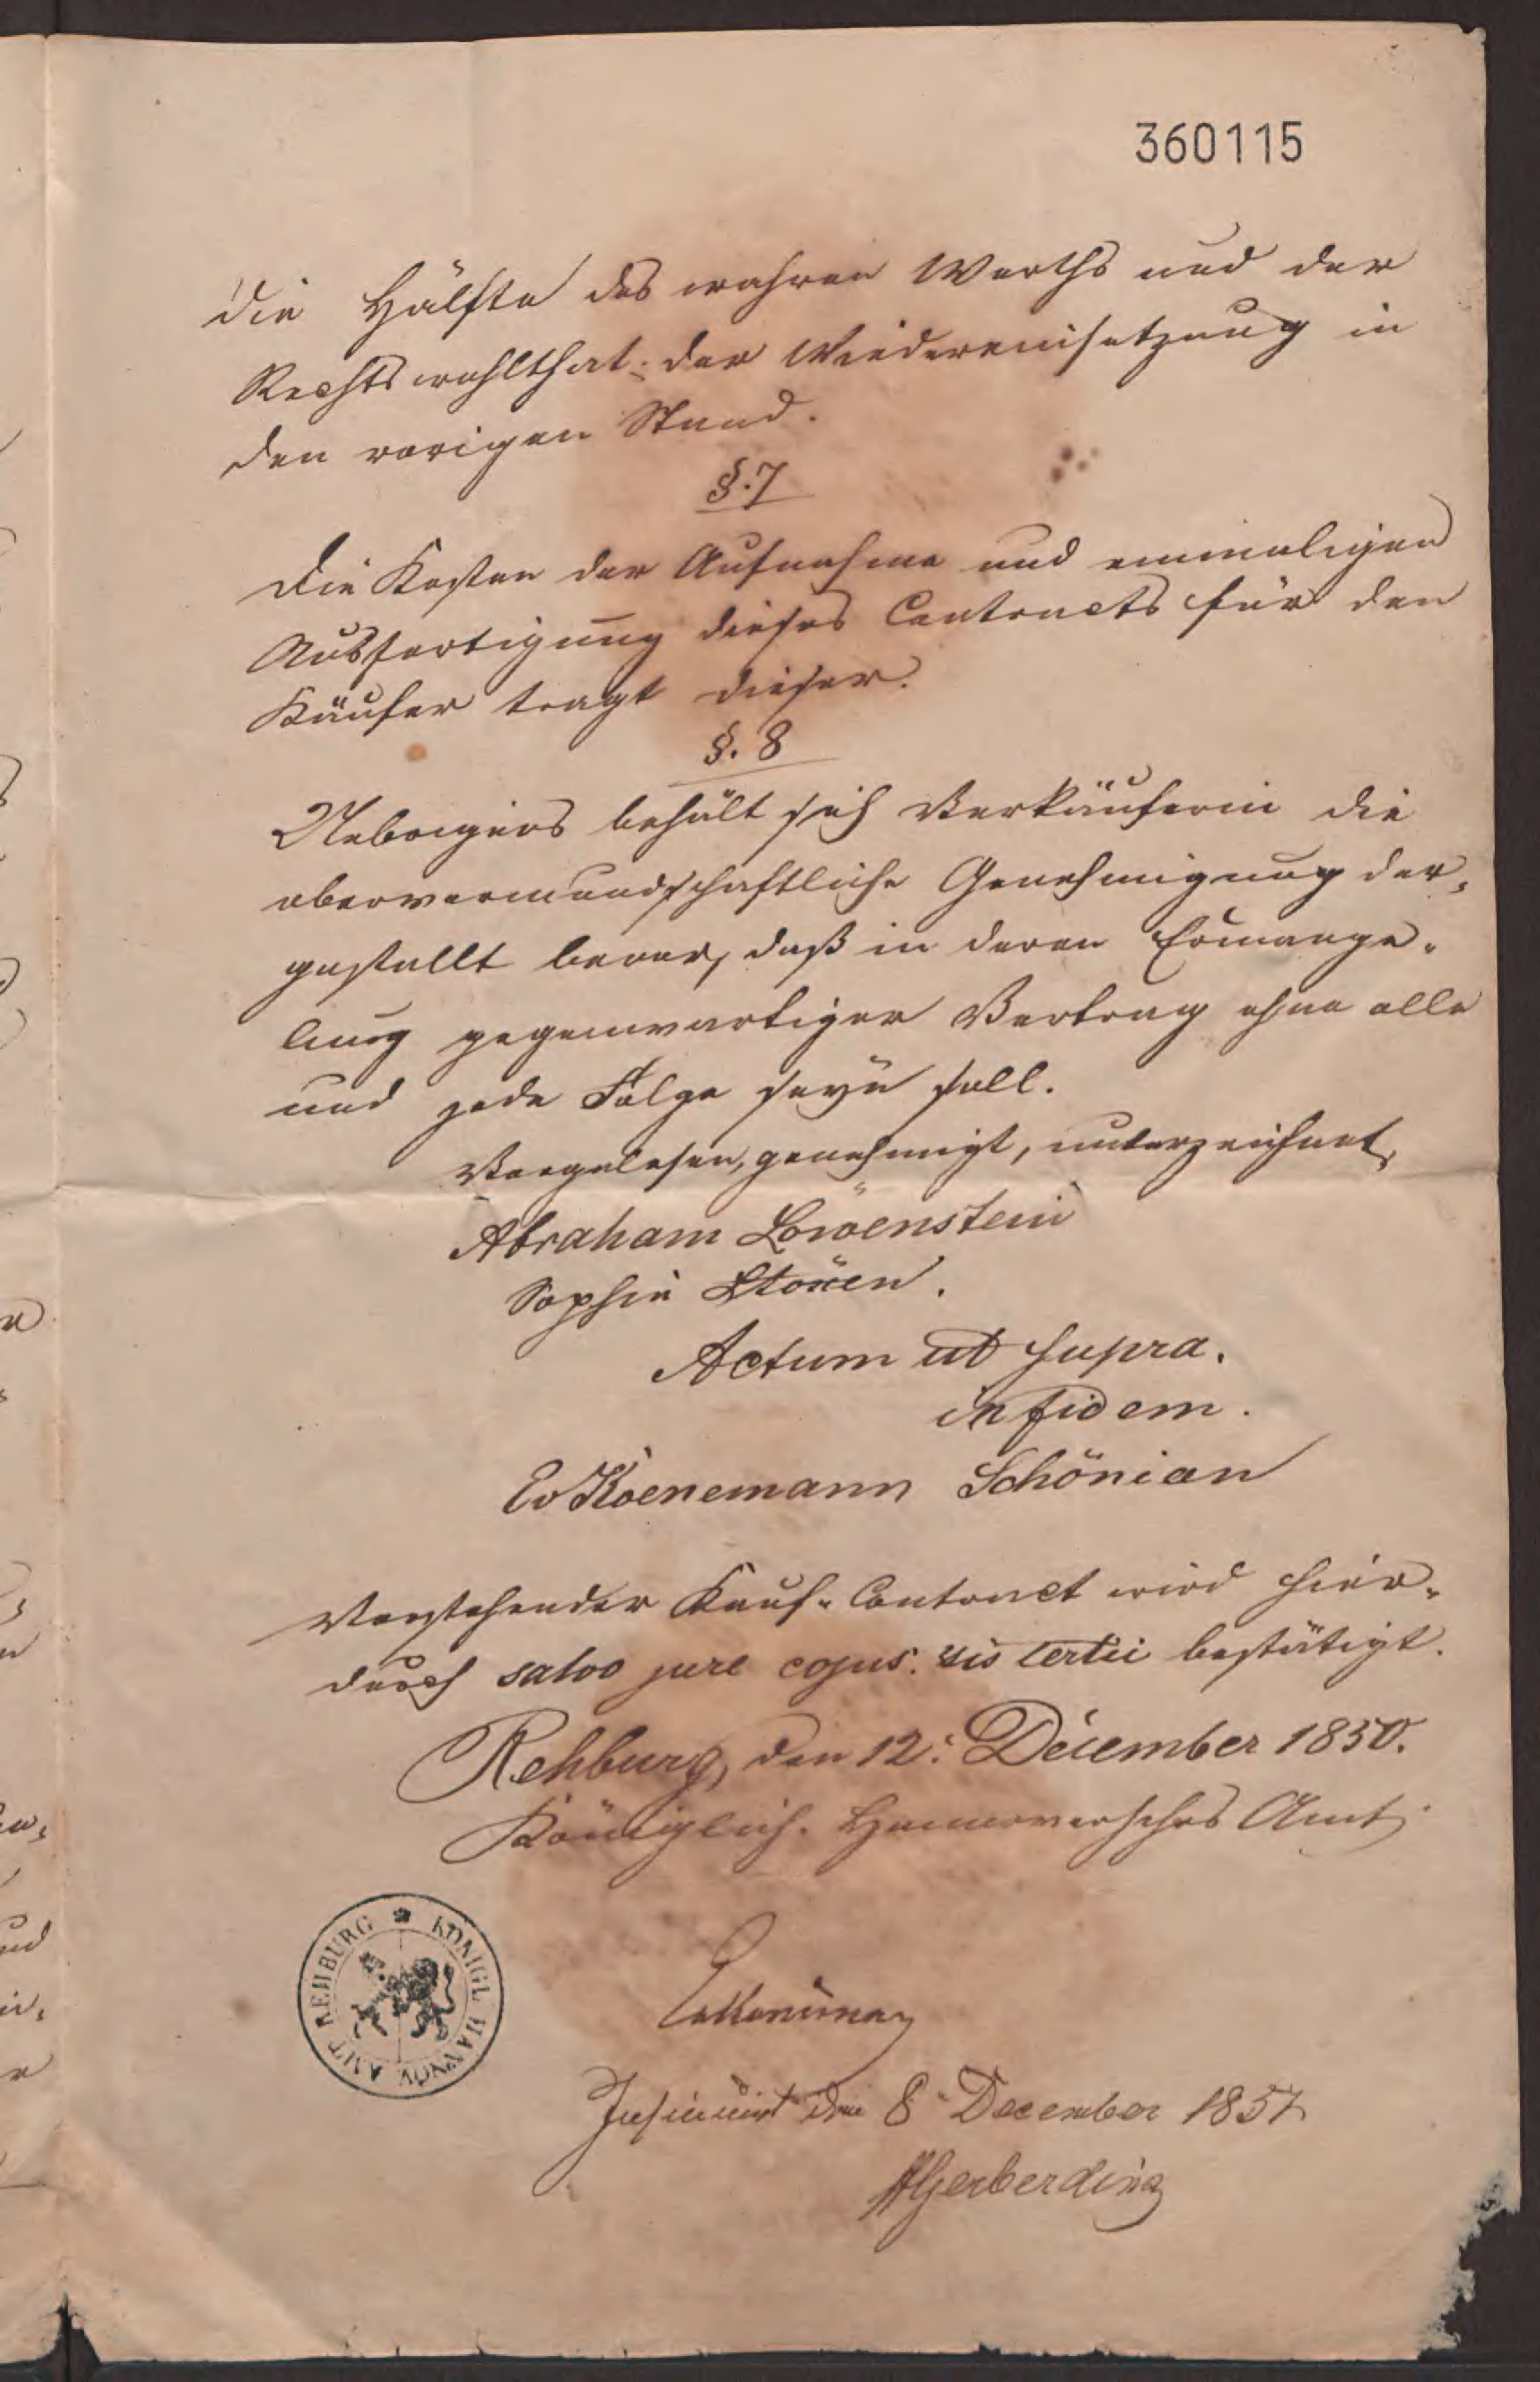 360115
die Hälfte des wahren Werths und der
Rechtswohlthat der Wiedereinsetzung in
den vorigen Stand.
§. 7
Die Kosten der Aufnahme und einmaligen
Ausfertigung dieses Contracts für den
Käufer tragt dieser.
§. 8
Uebrigens behält sich Verkäuferin die
obervormundschaftliche Genehmigung der-
gestallt bevor, daß in deren Ermange-
lung gegenwartiger Vertrag ohne alle
und jede Folge seyn soll.
Vorgelesen, genehmigt, unterzeichnet,
Abraham Löwenstein
Sophie
Actum ut supra.
in fidem.
Koenemann Schönian
Vorstehender Kauf-Contract wird hier-
durch salvo jure cujus vis tertii bestätigt.
Rehburg, den 12. December 1850.
Königlich Hannoversches Amt
KÖNIGL HANNOV AMT REHBURG
Insinuirt den 8 December 1857
Gerberding